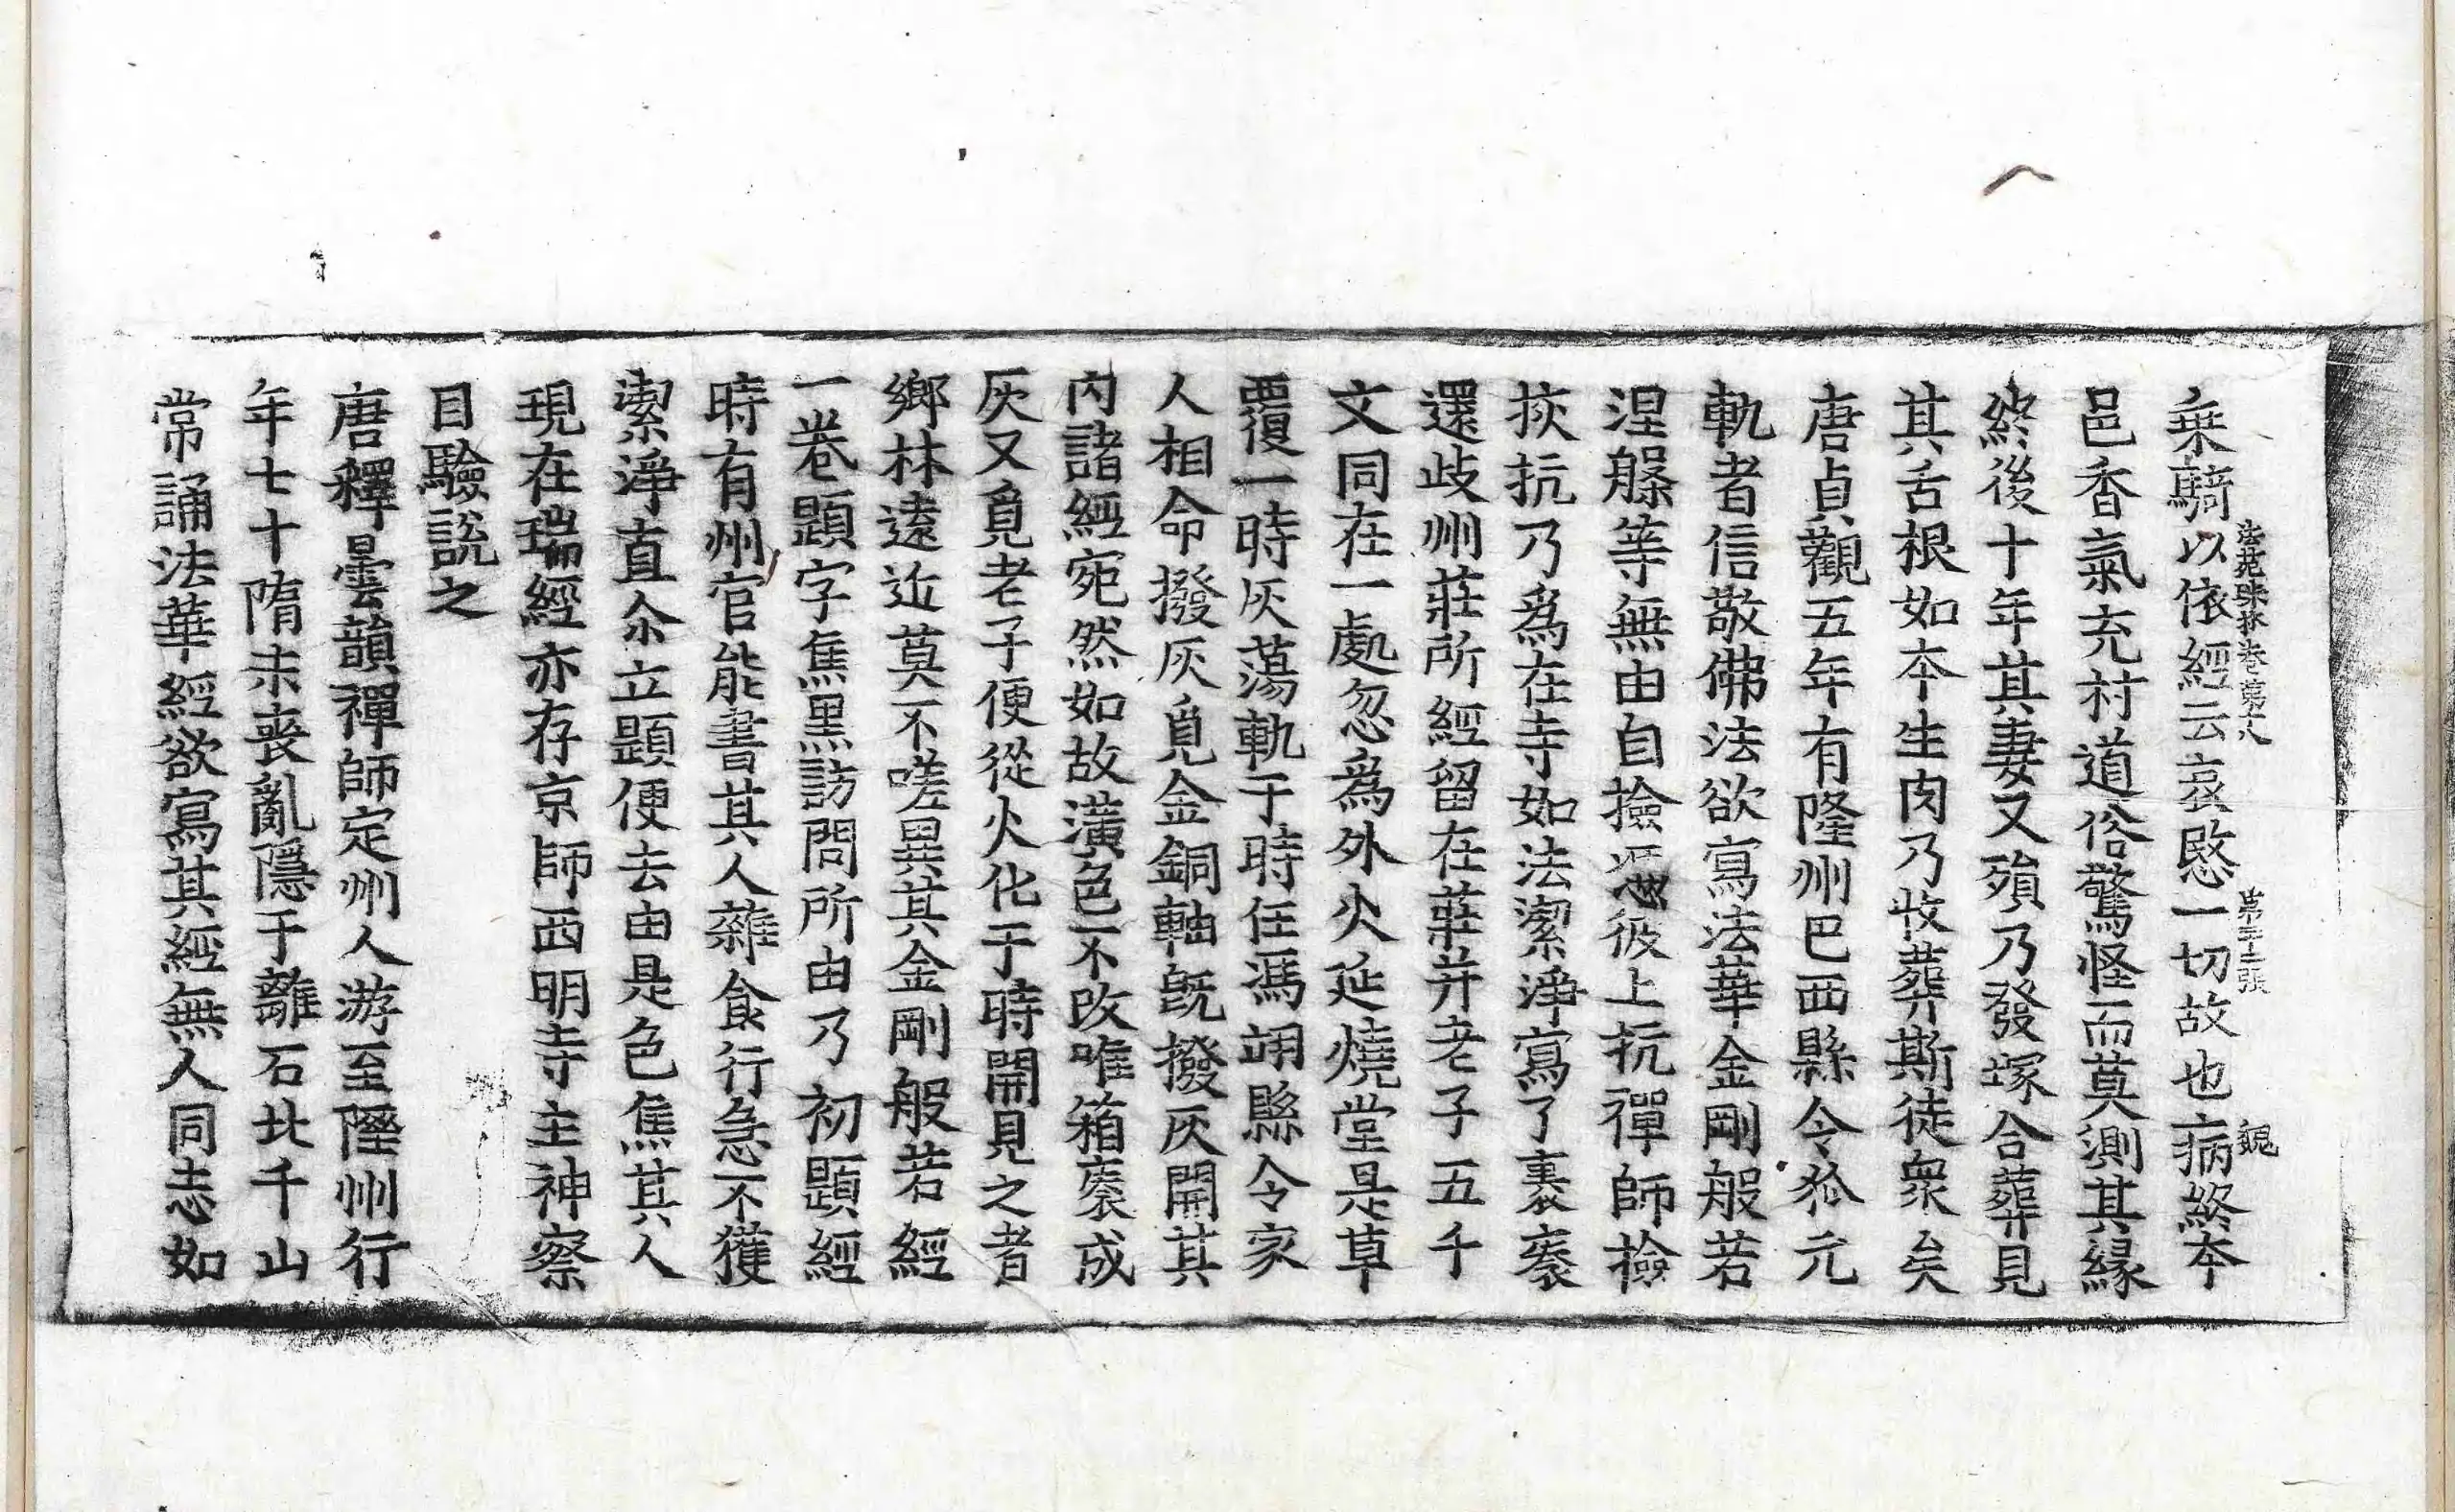 法苑珠林卷第十八 第三十二張 魏
乗騎以依經云哀愍一切故也病終本
邑香氣充村道俗驚怪而莫測其緣
終後十年其妻又殞乃發塚合葬見
其舌根如本生肉乃收葬斯徒衆矣
唐貞觀五年有隆州巴西縣令狐元
軌者信敬佛法欲寫法華金剛般若
涅槃等無由自撿憑彼上抗禪師撿
挍抗乃爲在寺如法潔淨寫了裹袠
還歧州莊所經留在莊并老子五千
文同在一處忽爲外火延燒堂是草
覆一時灰蕩軌于時任馮翊縣令家
人相命撥灰覓金銅軸旣撥灰開其
內諸經宛然如故潢色不改唯箱袠成
灰又覓老子便從火化于時開見之者
鄉林遠近莫不嗟異其金剛般若經
一卷題字焦黑訪問所由乃初題經
時有州官能書其人雜食行急不獲
潔淨直尒立題便去由是色焦其人
現在瑞經亦存京師西明寺主神察
目驗說之
唐釋曇韻禪師定州人游至隰州行
年七十隋末喪亂隱于離石北千山
常誦法華經欲寫其經無人同志如